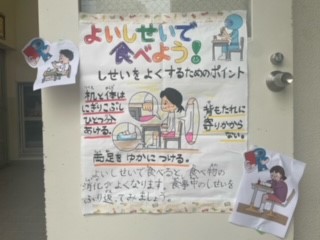 よいしせいで
食べよう!
しせいをよくするためのポイント
机と体は
にぎりこぶし
ひとつ分
あける。
背もたれに
寄りかからない。
両足をゆかにつける。
よいしせいで食べると、食べ物の
消化がよくなります。食事中のしせいを
ふり返ってみましょう。